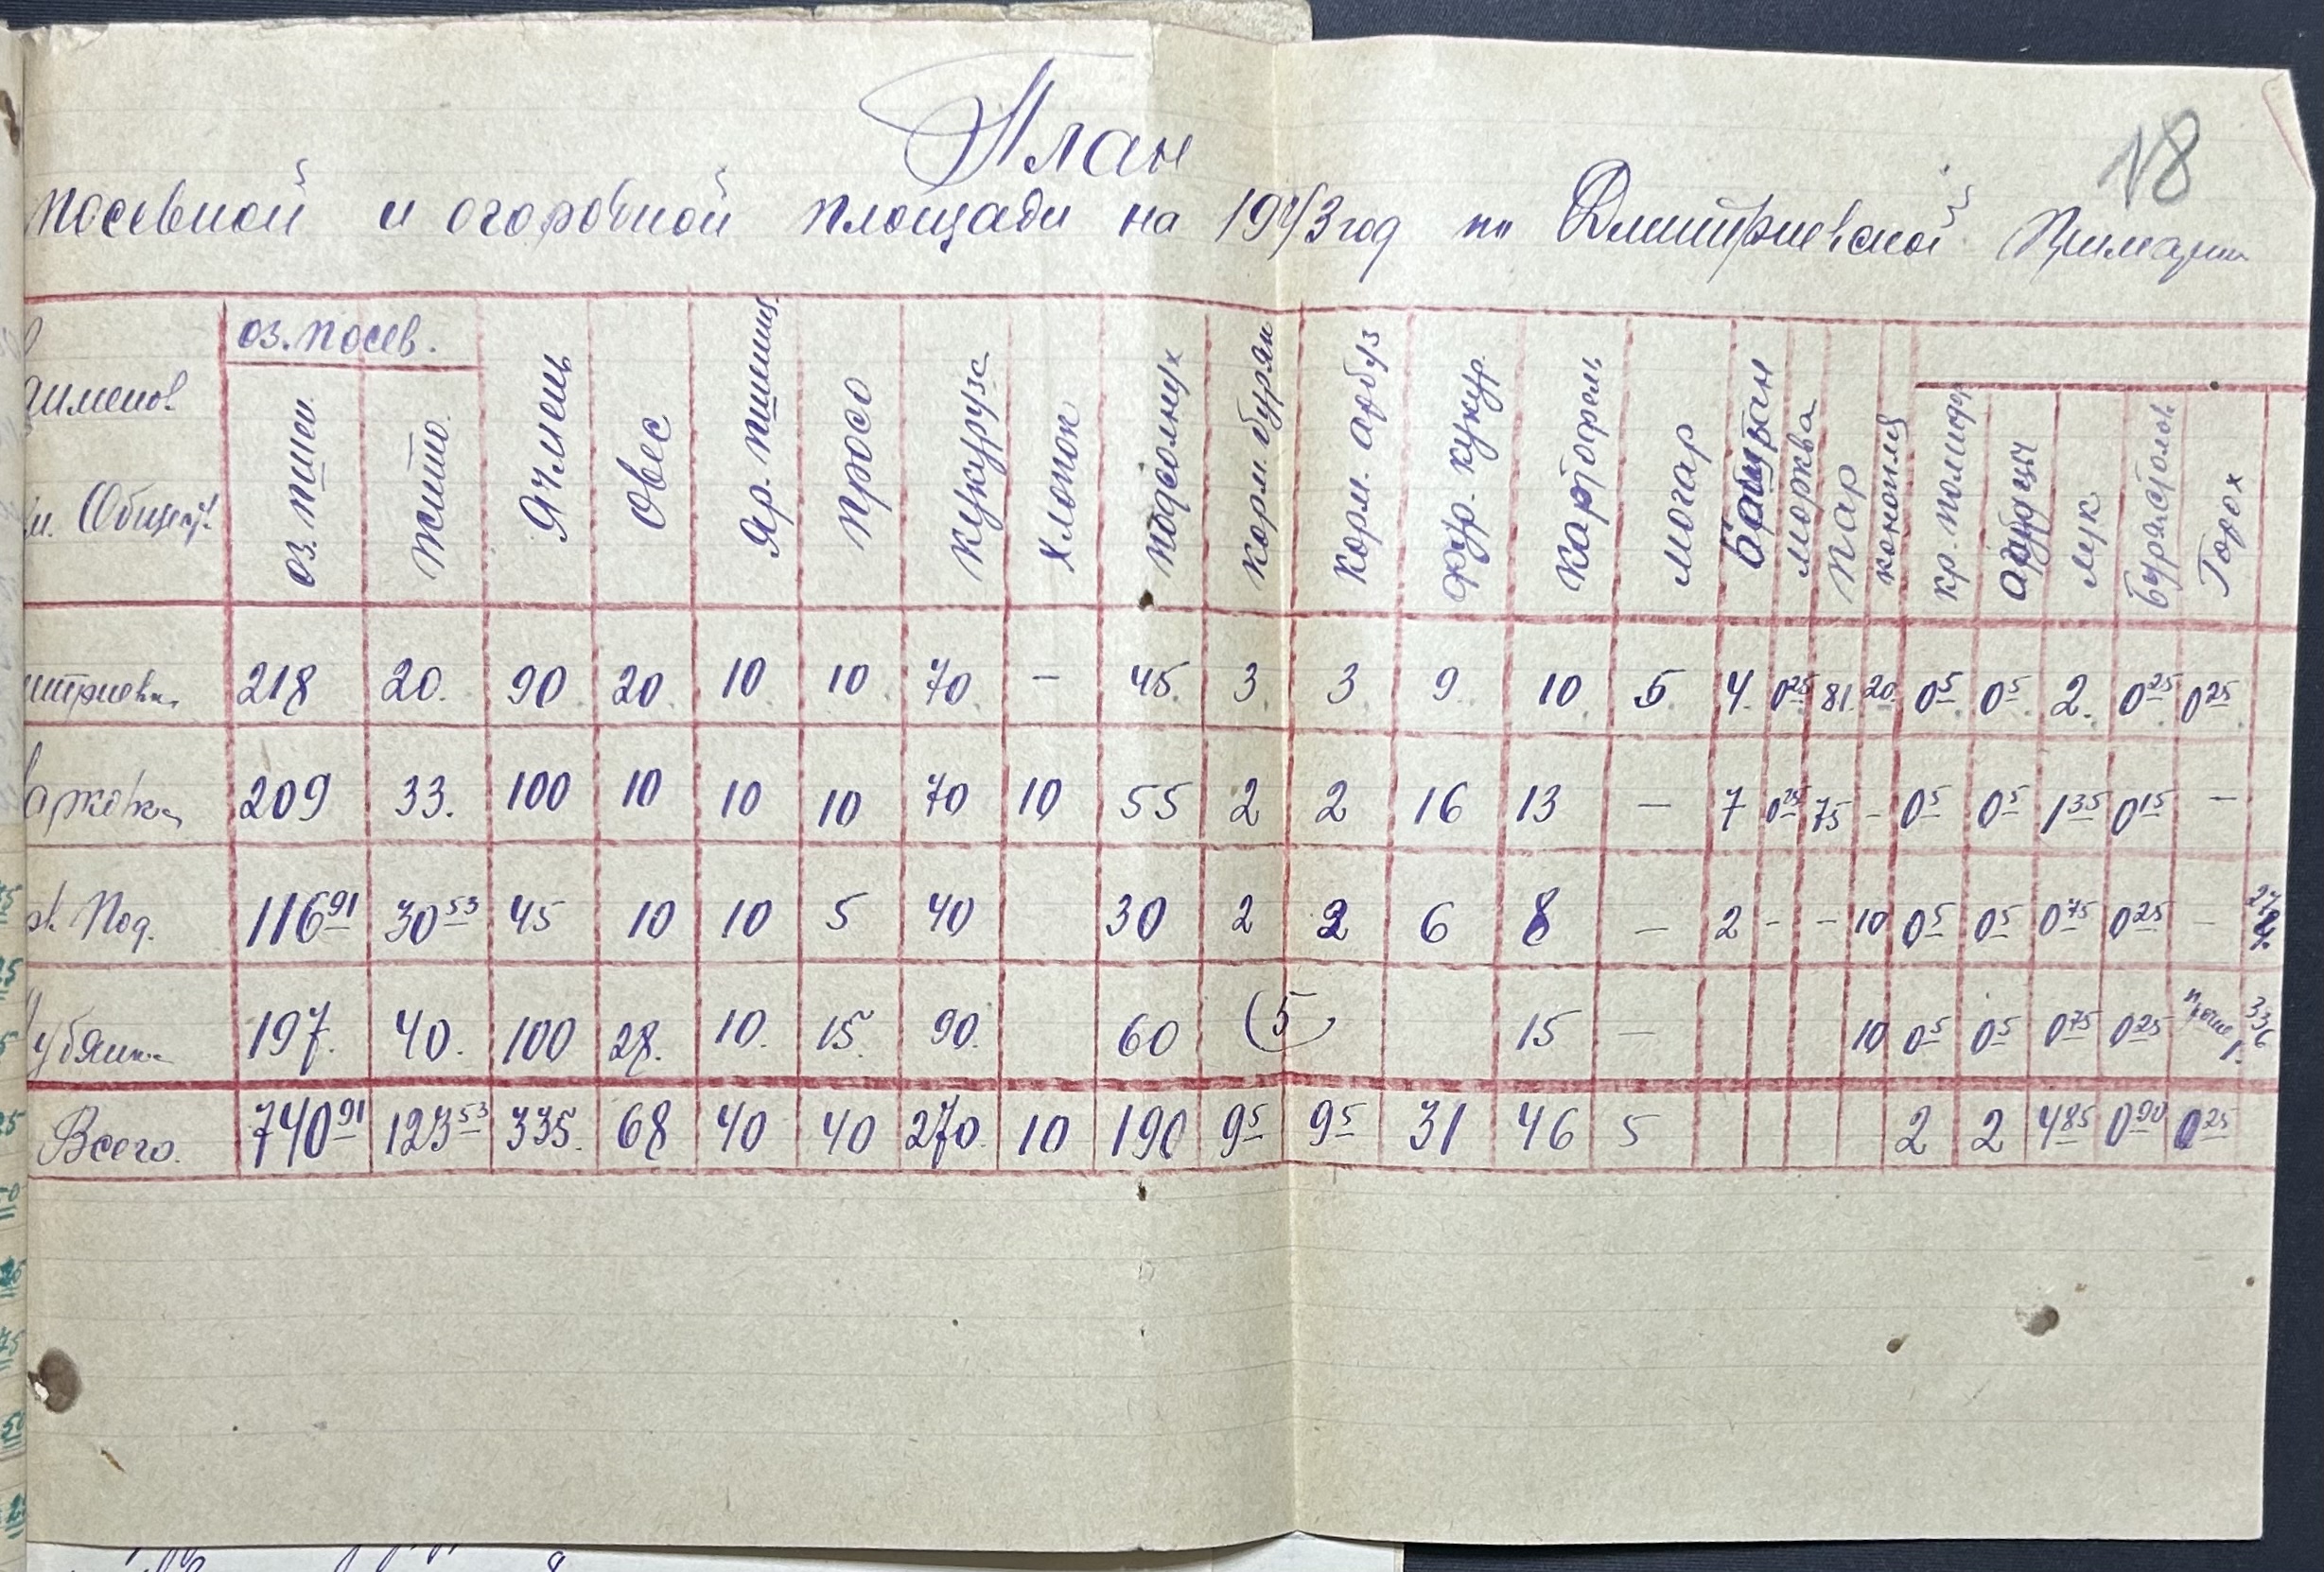 18
План
посевной и огородной площади на 1943 год по Дмитриевской Примарии
аименов. Общест.
оз. посев. оз. пшен. жито. Ячмень Овес Яр. пшениц. Просо кукуруза Хлопок подсолнух корм. буряк корм. арбуз фур. кукур. картофель могар морква пар конопля кр. помидор лук Буряк столов. Горох
итриевк. 218 20. 90 20. 10 10 70. — 45. 3. 3 9. 10 5. 4. 0 25 81. 20. 0 5 0 5 2. 0 25 0 25
арковка 209 33. 100 10 10 10 70 10 55 2 2 16 13 — 7 0 25 75 — 0 5 0 5 1 35 0 15 —
Под. 116 91 30 53 45 10 10 5 40 30 2 2 6 8 — 2 - - 10 0 5 0 5 0 75 0 25 —
убянка 197. 40. 100 28. 10. 15. 90. 60 (5) 15 — 10 0 5 0 5 0 75 0 25
Всего. 740 91 123 53 335. 68 40 40 270. 10 190 9 5 9 5 31 46 5 2 2 4 85 0 90 0 25